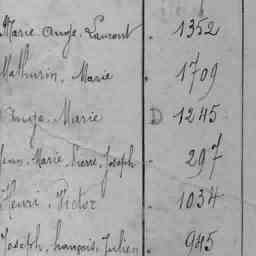 Marie Ange. Laurent . 1352
Mathurin. Marie . 1709
Ange. Marie D 1245
Jean. Marie Pierre. Joseph . 297
Henri. Victor . 1034
Joseph. François. Julien . 945